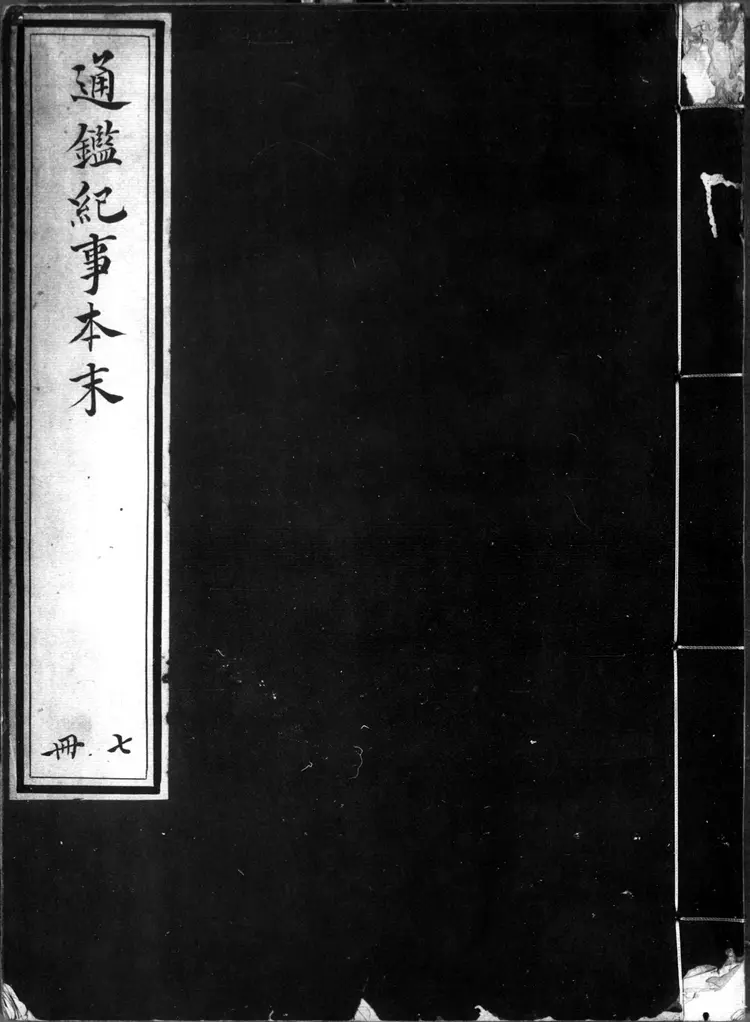 通鑑紀事本末
七冊